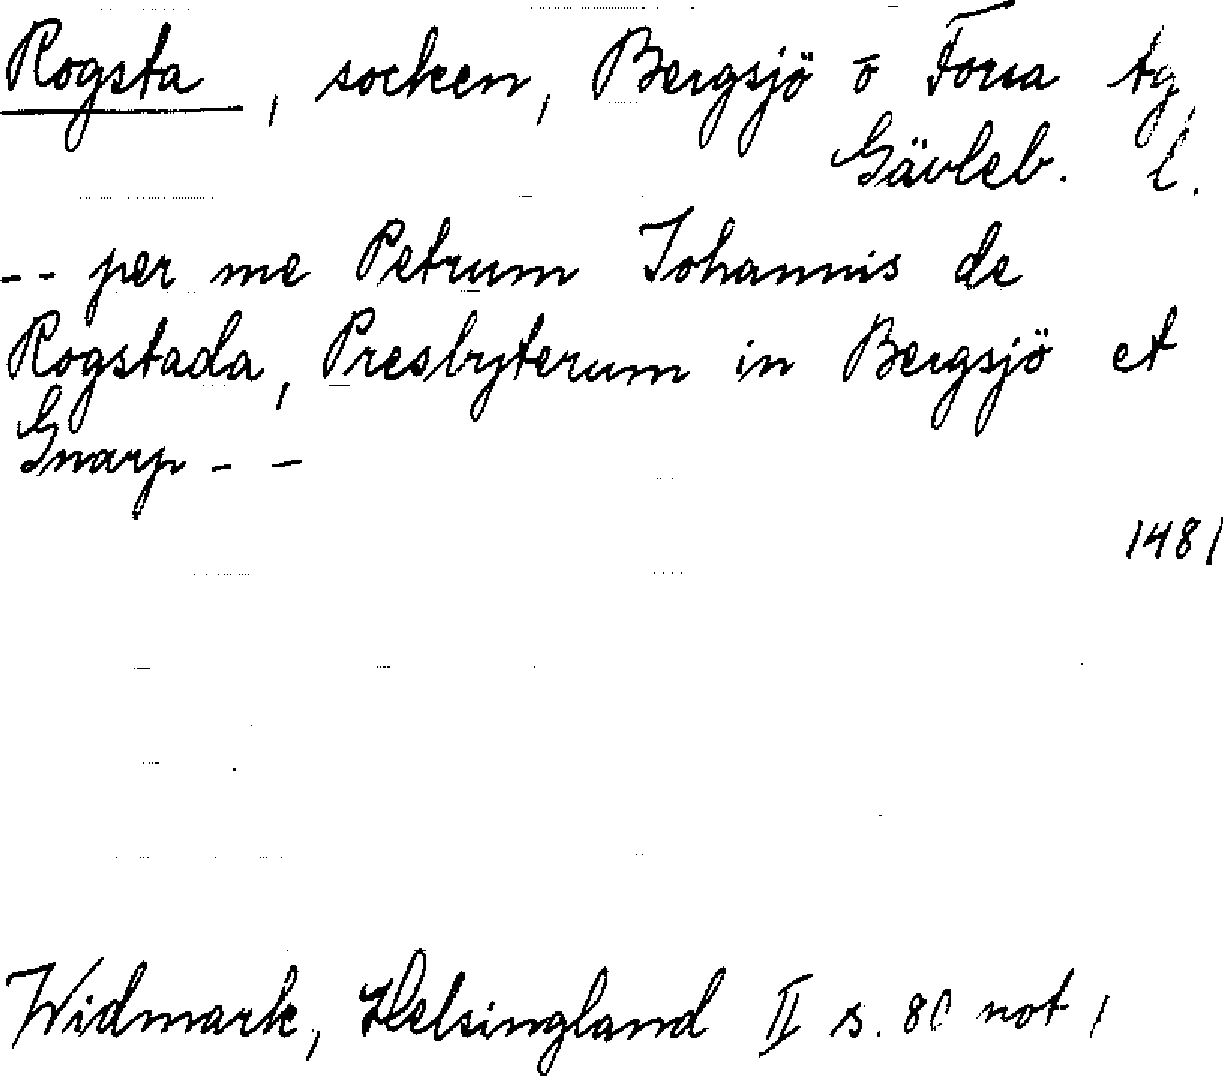 Rogsta, socken, Bergsjö o Forsa tg,
Gävleb. l.
-- per me Petrum Johannis de
Rogstada, Presbyterum in Bergsjö et
Gnarp - -
1481
Widmark, Helsingland II s. 80 not 1